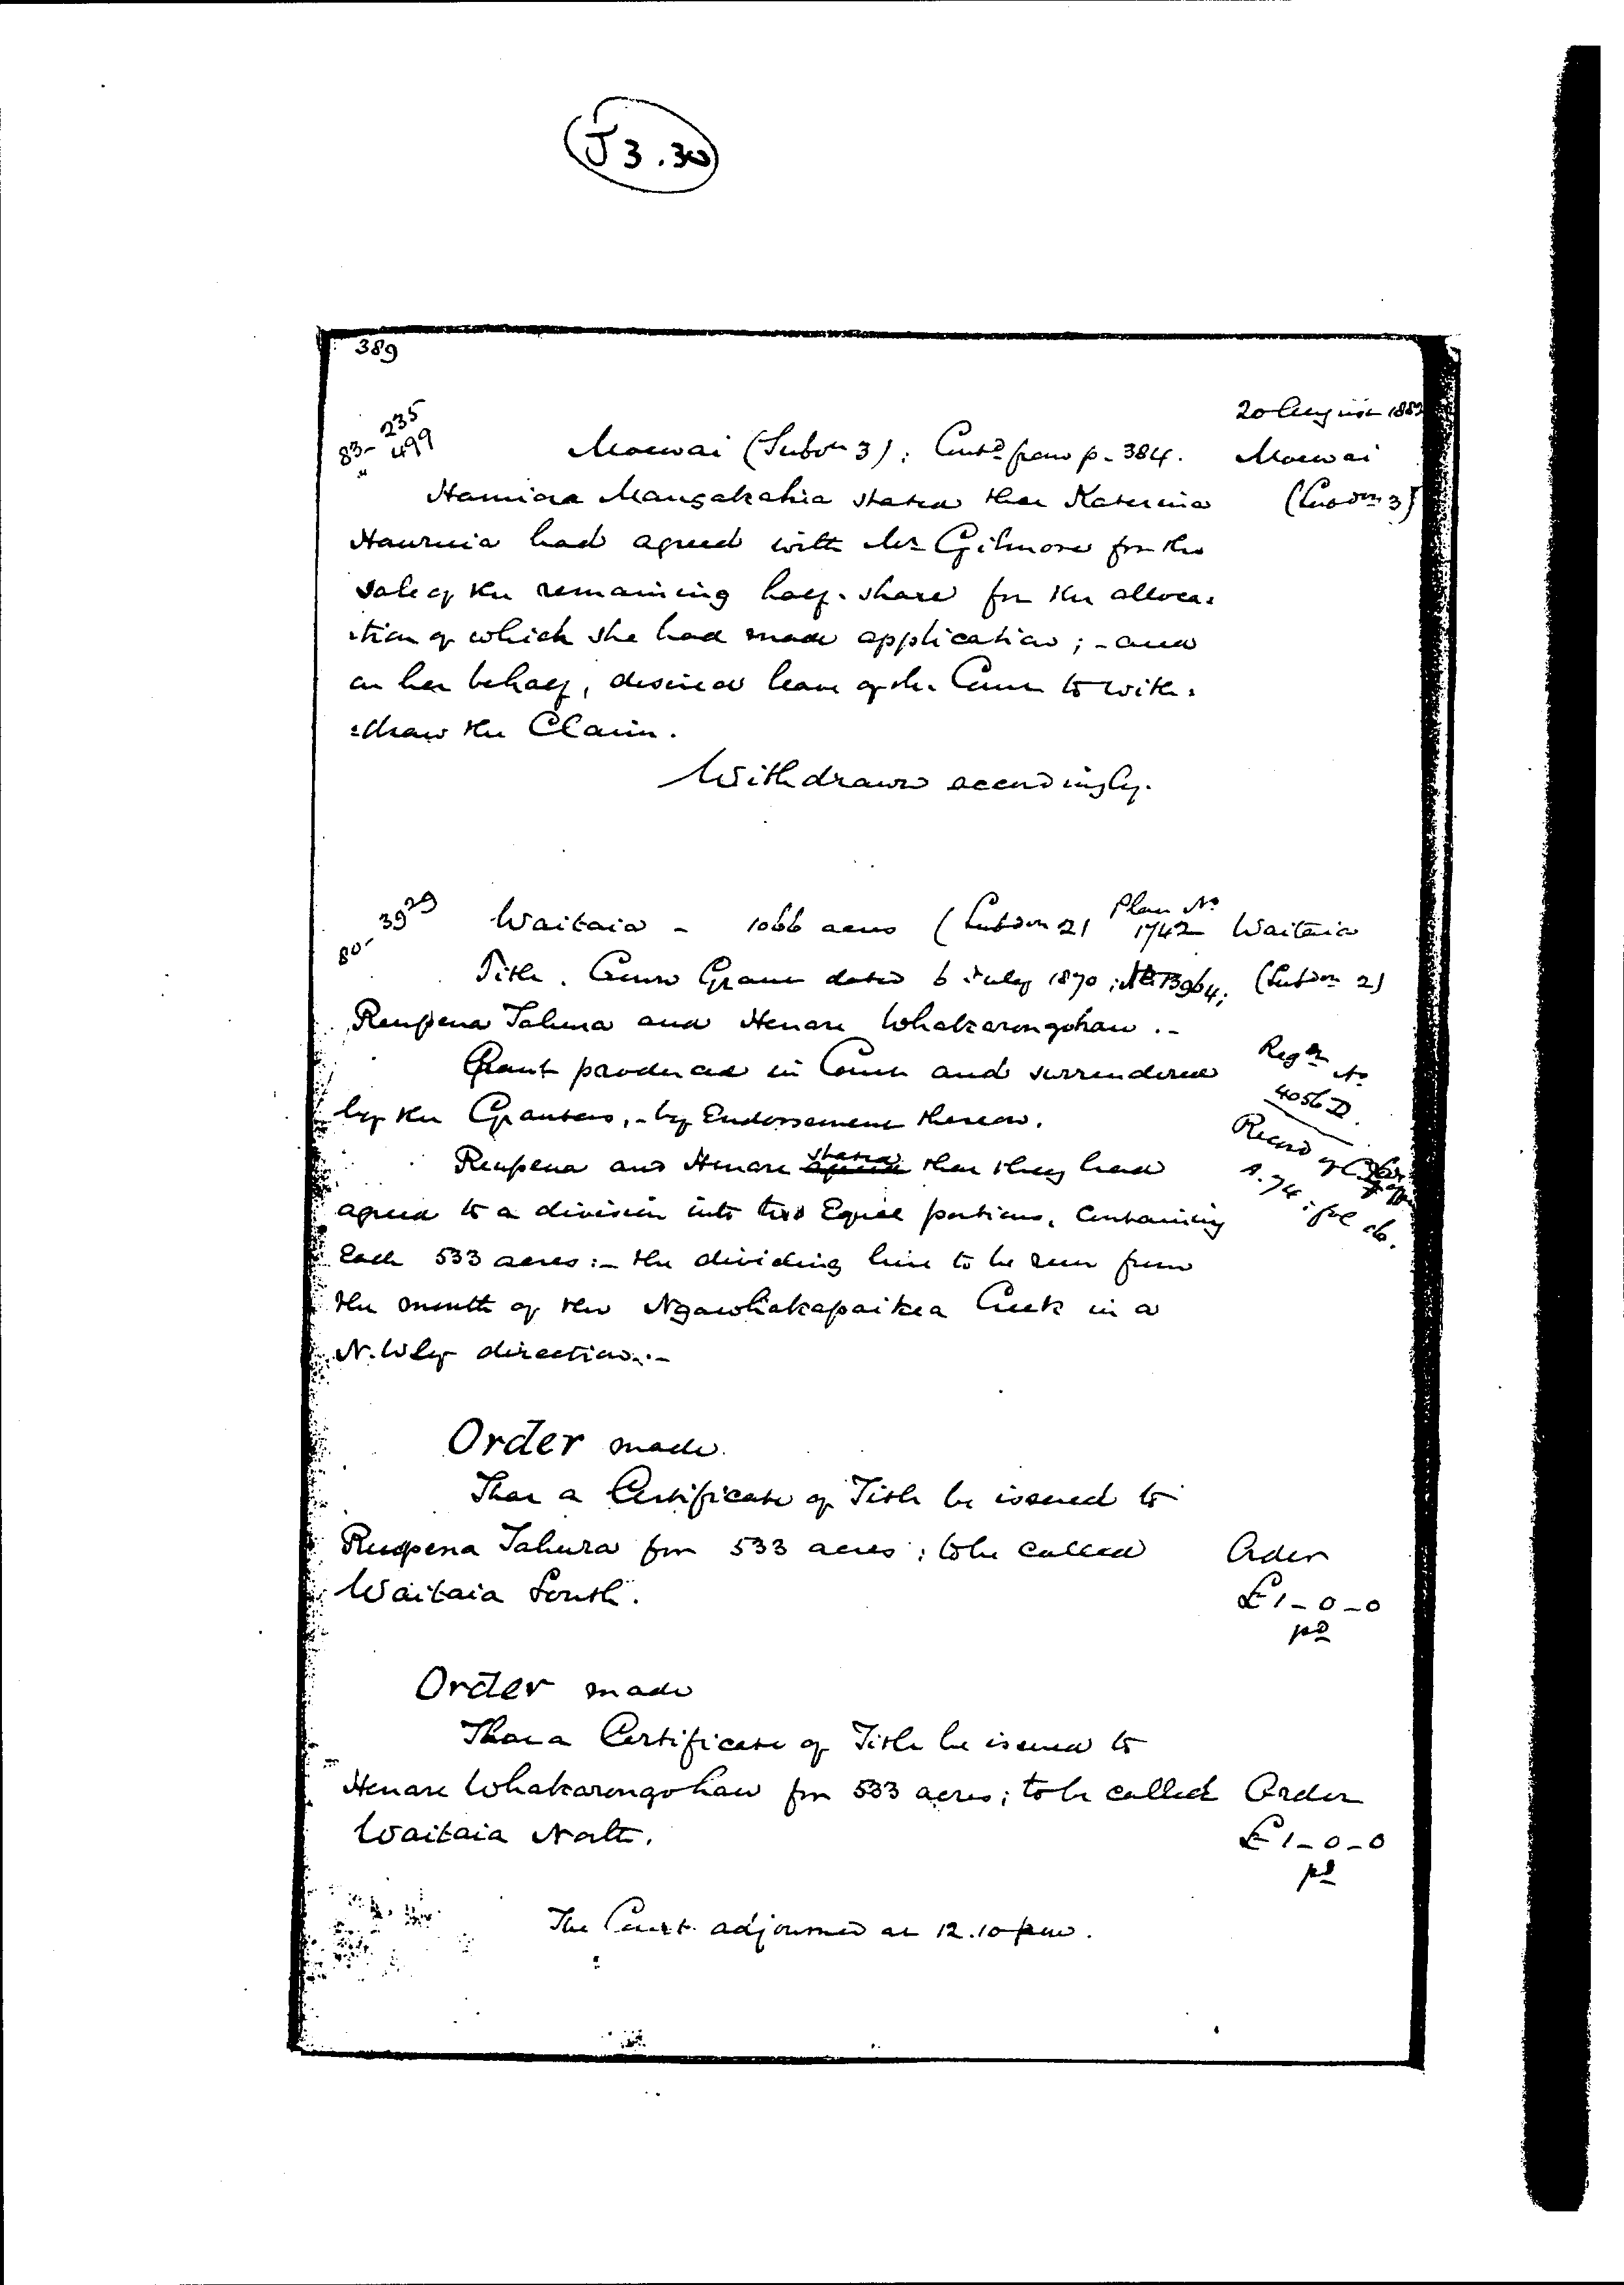 J 3.30
389
20 August 188
83- 235
" 499
Moewai (Subdn 3); Contd from p. 384.
Moewai
(Subdn 3)
Hamiora Mangakahia stated that Katerina
Hauruia had agreed with Mr Gilmore for the
sale of the remaining half-share for the alloca=
=tion of which she had made application; - and
on her behalf, desired leave of the Court to with=
=draw the Claim.
Withdrawn accordingly.
80- 3929
Waitaia - 1066 acres (Subdn 2) Plan No 1742
Waitaia
(Subdn 2)
Title. Crown Grant dated 6 July 1870; No 13964;
Reupena Tahura and Henare Whakarongohau.-
Grant produced in Court and surrendered
by the Grantees,- by Endorsement thereon.
Regn No
4056 D.
Record of
s. 74 :
Reupena and Henare agreed stated that they had
agreed to a division into two Equal portions, Containing
Each 533 acres:- the dividing line to be run from
the mouth of the Ngawhakapaikea Creek in a
N. Wly direction.-
Order made.
That a Certificate of Title be issued to
Reupena Tahura for 533 acres; to be called
Waitaia South.
Order
£1-0-0
pd
Order made
That a Certificate of Title be issued to
Henare Whakarongohau for 533 acres; to be called
Waitaia North.
Order
£1-0-0
pd
The Court adjourned at 12.10 pm.